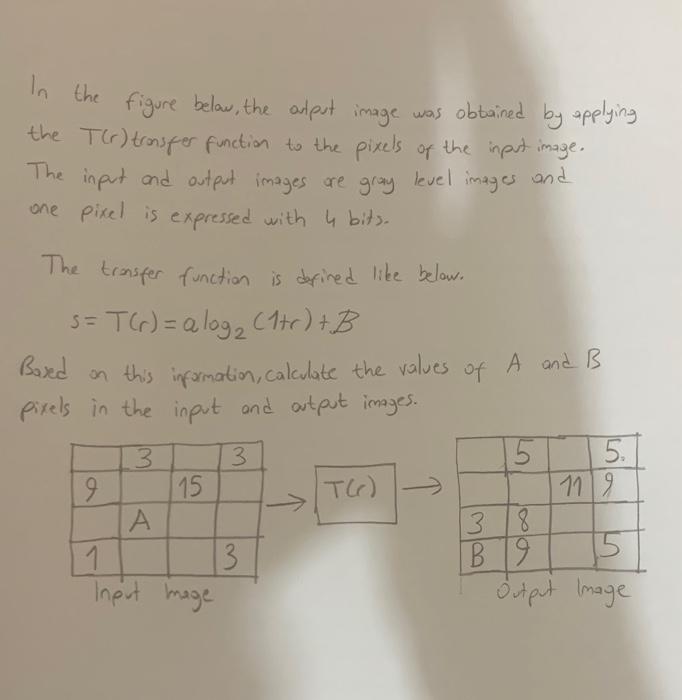 In the figure below, the output image was obtained by applying
the T(r) transfer function to the pixels of the input image.
The input and output images are gray level images and
one pixel is expressed with 4 bits.
The transfer function is defined like below.
s = T(r) = a log₂ (1+r) + B
Based on this information, calculate the values of A and B
pixels in the input and output images.
3 3
9 15
A
1 3
Input Image
T(r)
5 5.
11 9
3 8
B 9 5
Output Image